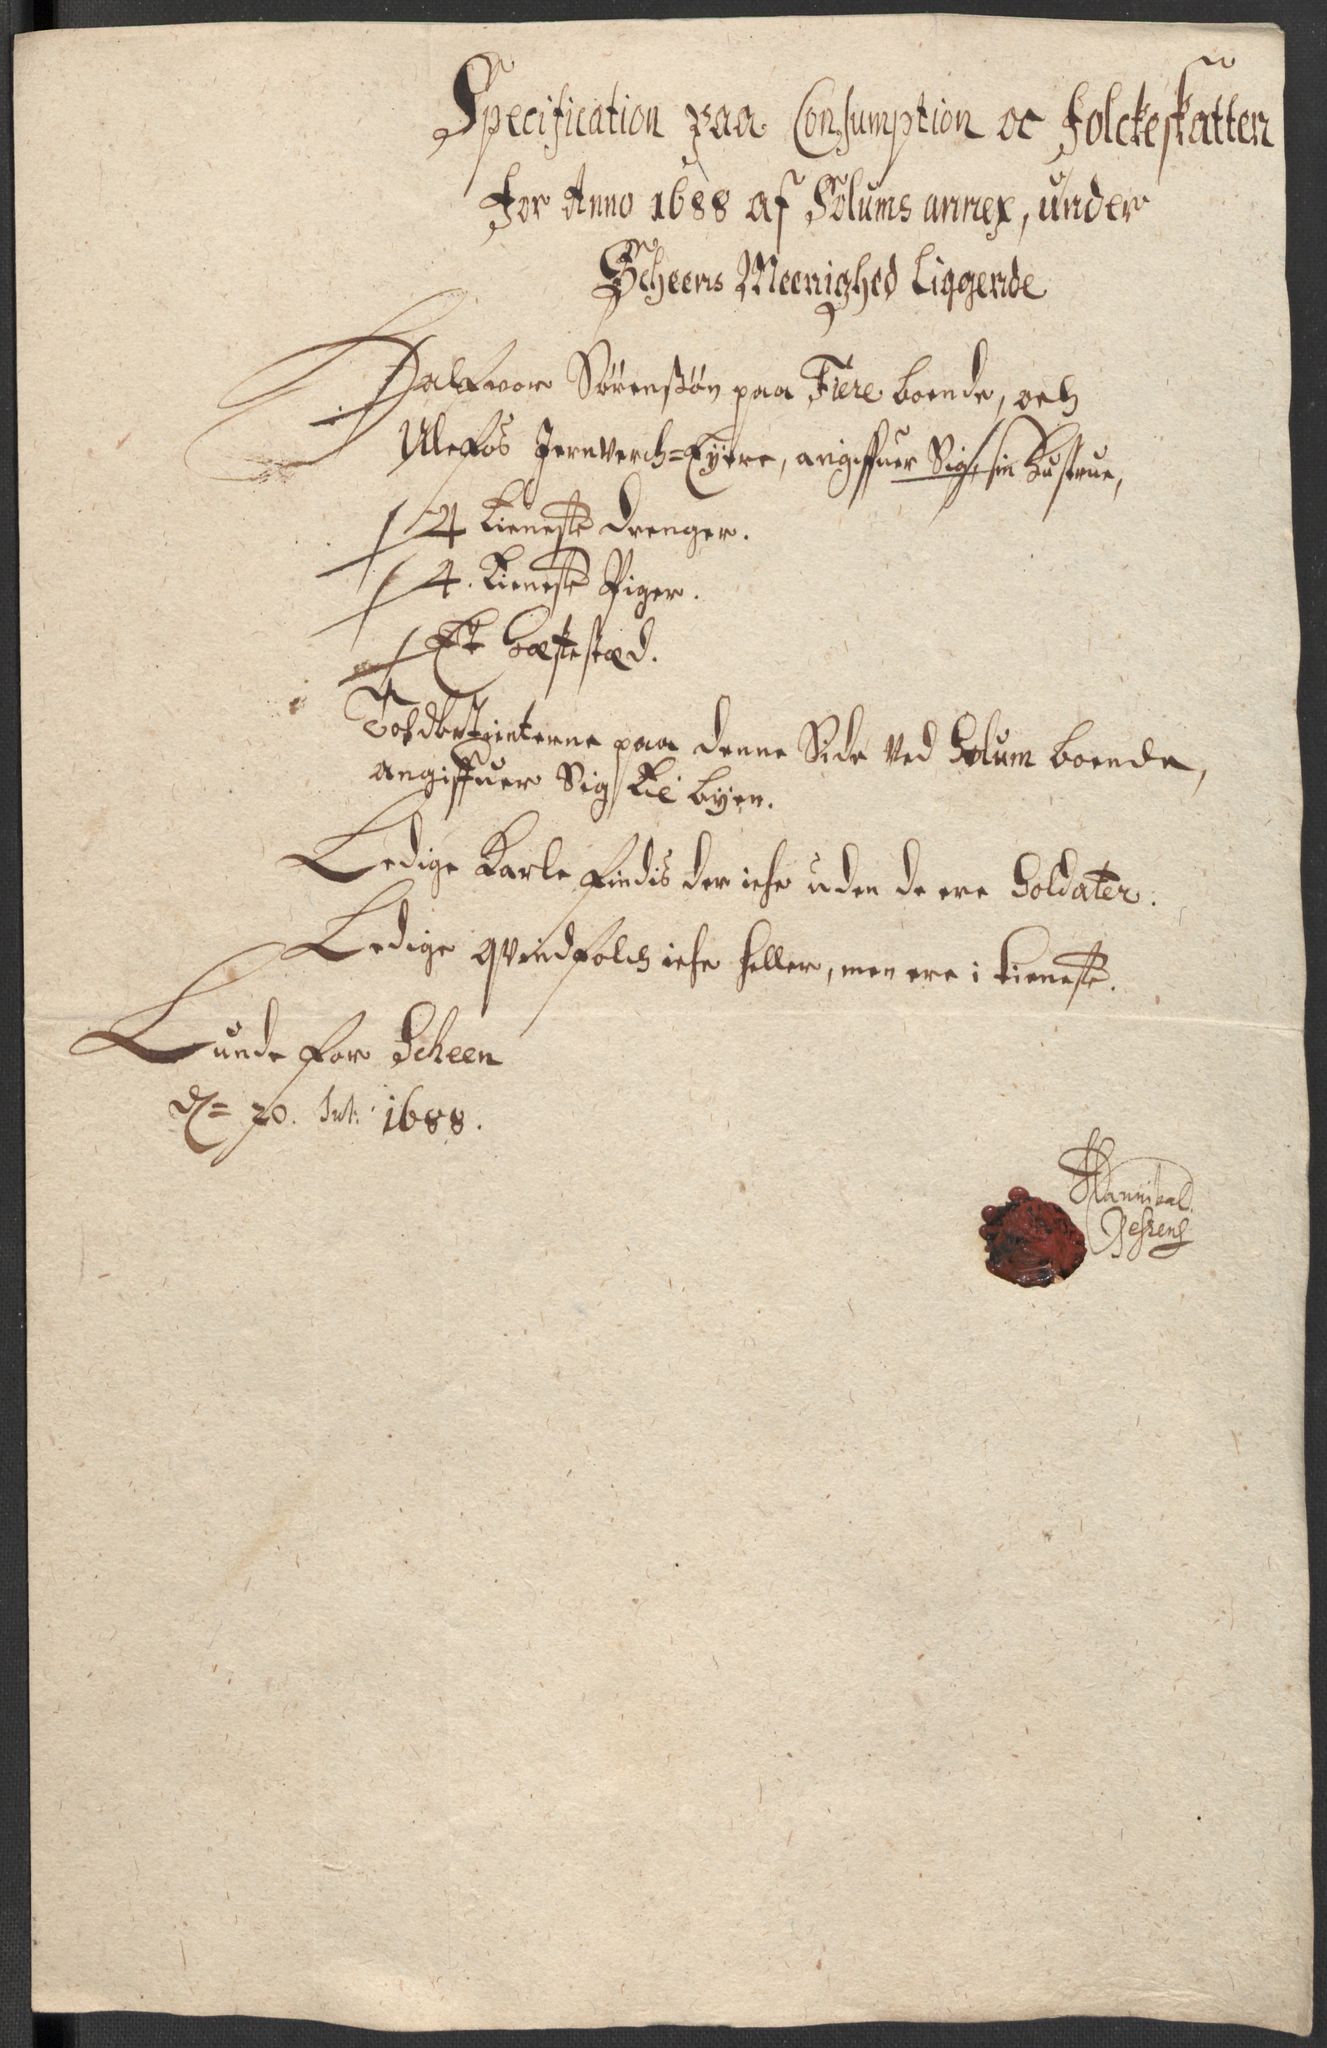 Specification paa Consumption oc Folckeskatten
for Anno 1688 af Solums annex, under
Scheens Meenighed Liggende
Halfvor Sørensøn paa Fiere boende, och
Ulefos Jernverch=Eyere, angiffuer Sig, sin Hustrue,
4 tieneste Drenger.
4. tieneste Piger.
Et Hæstestæd.
paa denne Side ved Solum boende,
angiffuer Sig til byen.
Ledige Karle findis der iche uden de ere Soldater.
Ledige qvindfolch iche heller, men ere i tieneste.
Lunde for Scheen
d= 20. 1688.
Hannibal